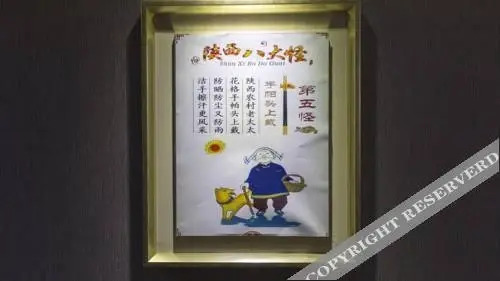 陕西八大怪
Shan Xi Ba Da Guai
第五怪
手帕头上戴
陕西农村老太太
花格手帕头上戴
防晒防尘又防雨
洁手擦汗更风采
COPYRIGHT RESERVERD